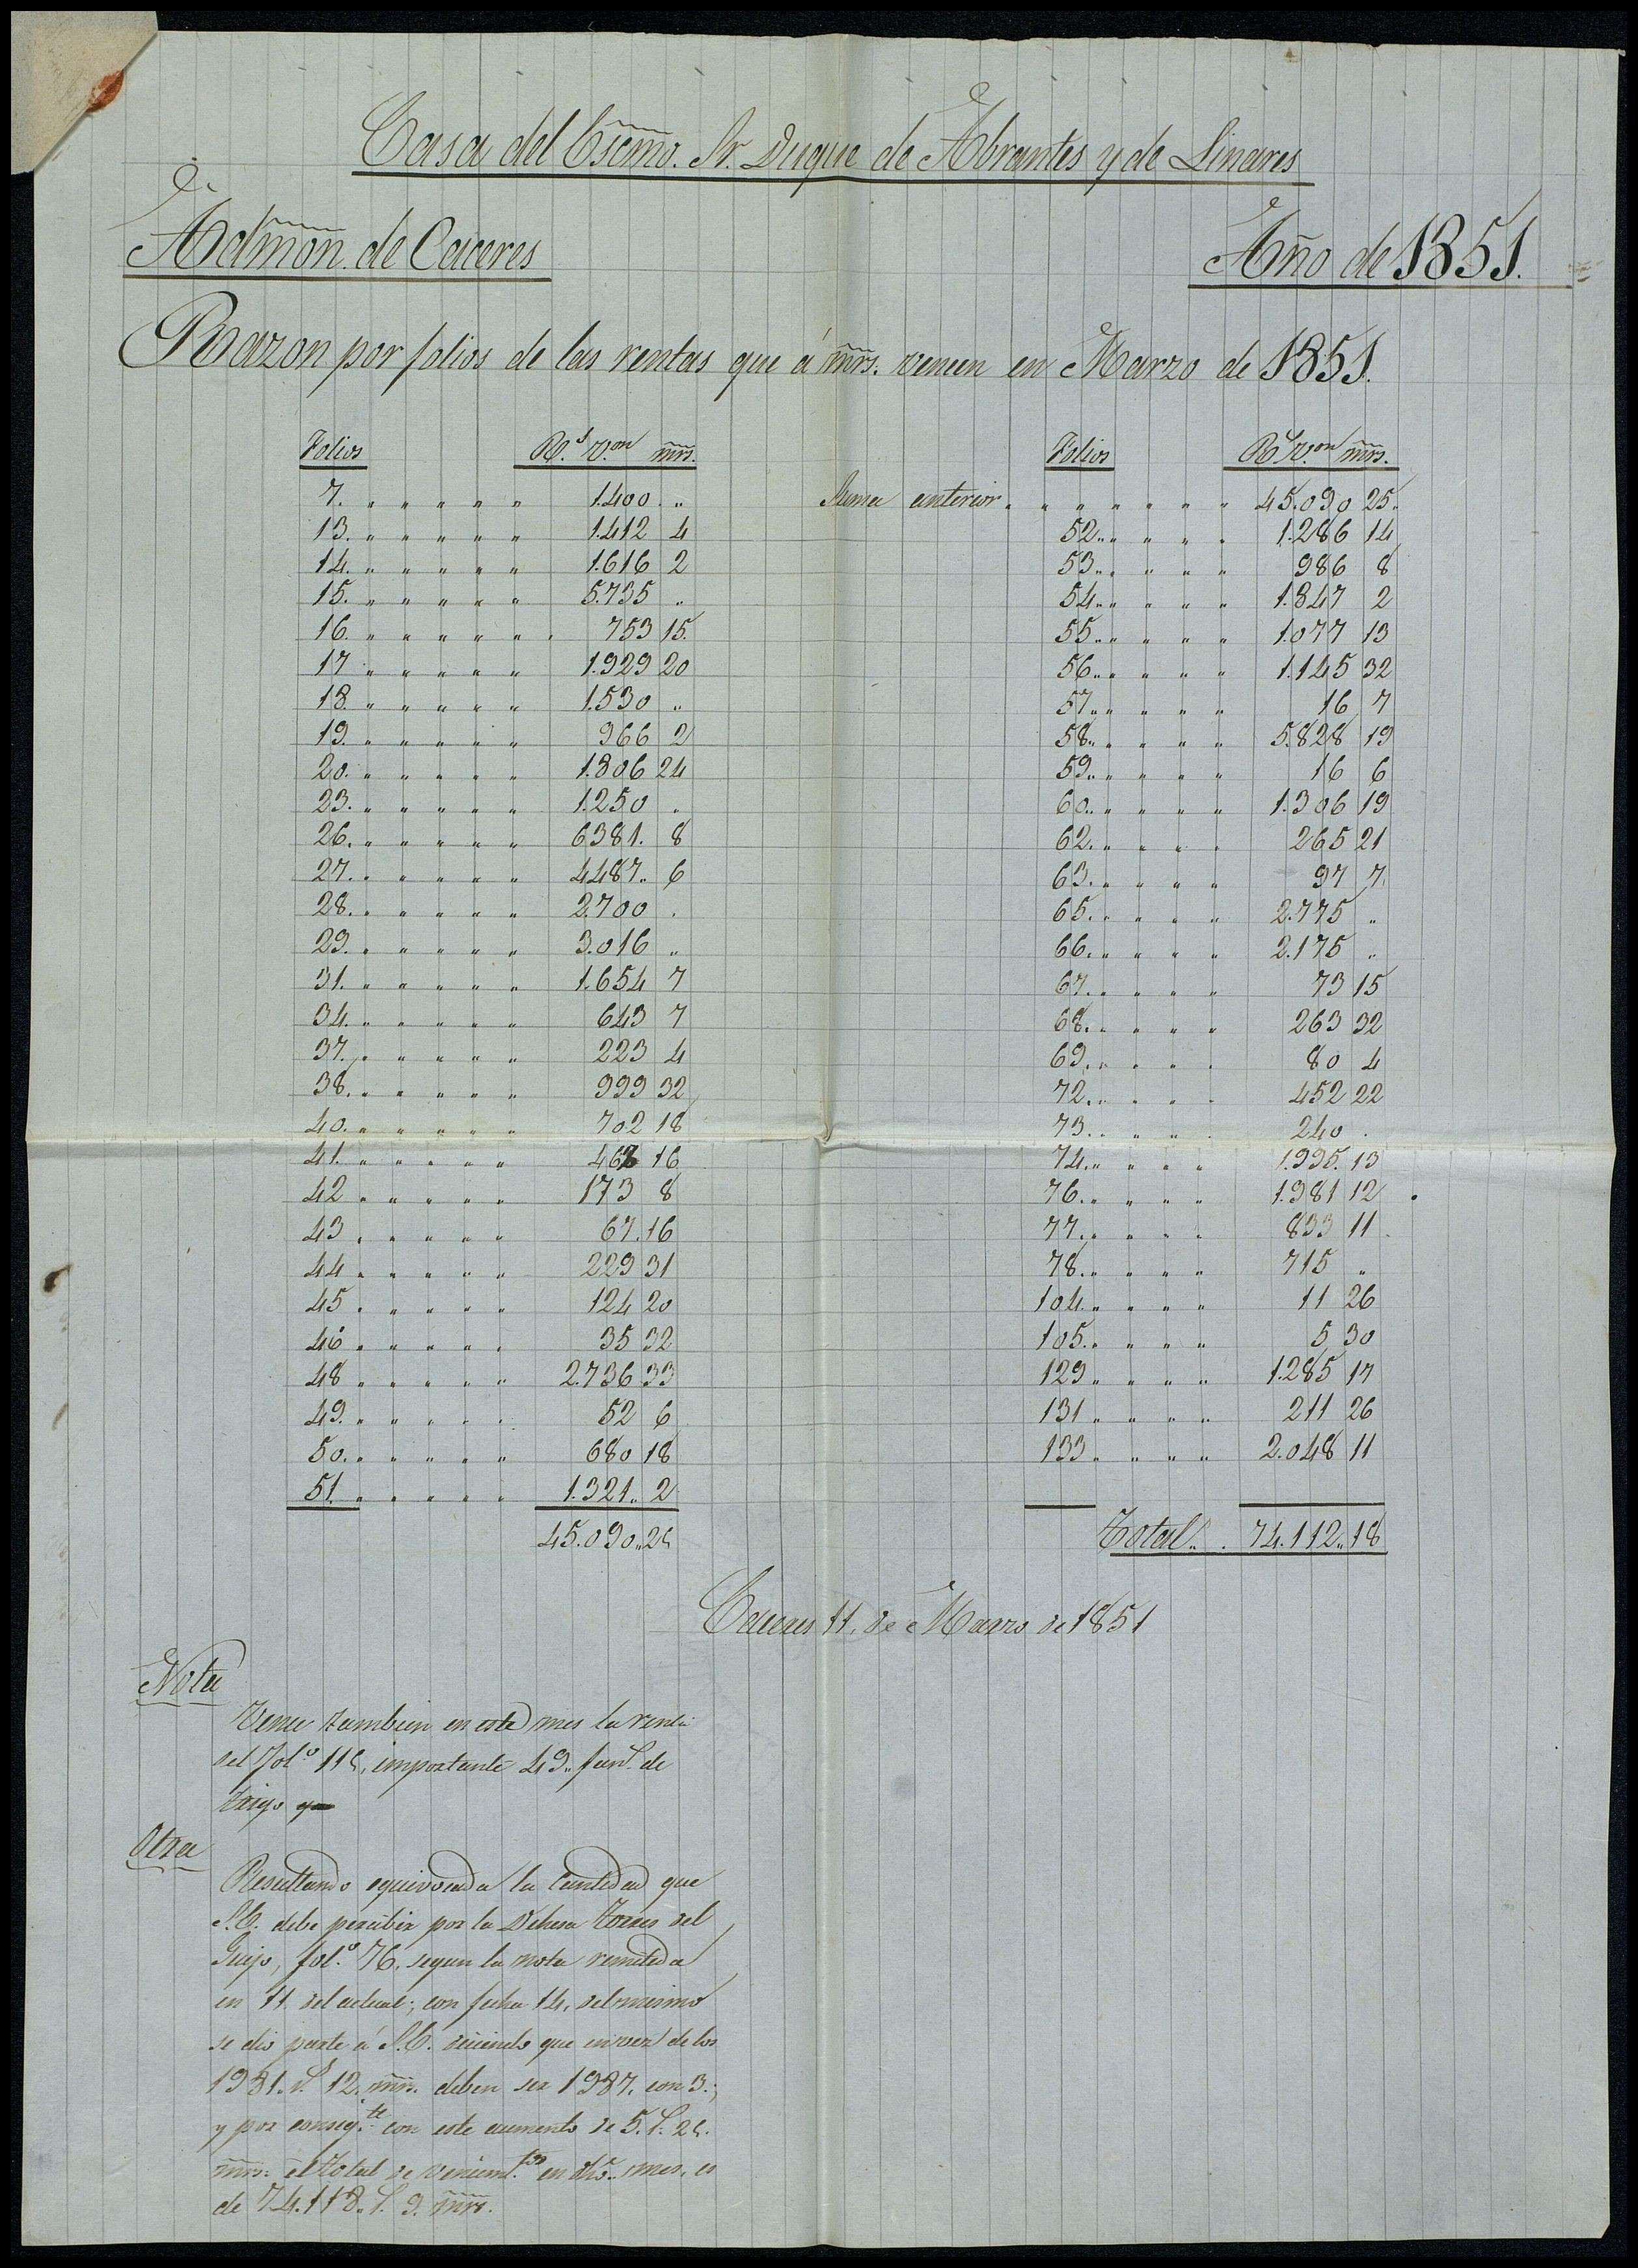 Casa del Escmo. Sr. Duque de Abrantes y de Linares
Admon. de Caceres
Año de 1851.
Razon por folios de las rentas que á mrs. vencen en Marzo de 1851.
Folios R.s V.on mrs.
7. 1.400 "
13. 1.412 4
14. 1.616 2
15. 5.735 "
16. 753 15
17 1.929 20
18. 1.530 "
19. 966 2
20. 1.806 24
23. 1.250 "
26. 6381. 8
27. 4487.. 6
28. 2.700 "
29. 3.016 "
31. 1.654 7
34. 643 7
37. 223 4
38. 999 32
40. 702 18
41. 16
42 173 8
43 67. 16
44 229 31
45 124 20
46 35 32
48 2.736 33
49. 52 6
50. 680 18
51. 1.321.. 2
45.090..25
Folios R.s V.on mrs.
Suma anterior 45.090 25.
52.. 1.286 14
53.. 986 8
54.. 1.847 2
55.. 1.077 13
56.. 1.145 32
57.. 16 7
58.. 5.828 19
59.. 16 6
60.. 1.306 19
62. 265 21
63. 97 7.
65. 2.775 "
66. 2.175 "
67. 73 15
68. 263 32
69. 80 4
72. 452 22
73. 240 .
74. 1.995. 13
76. 1.981 12
77. 833 11
78. 715 "
104. 11 26
105. 5 30
129 1.285 17
131 211 26
133 2.048 11
Total.. 74.112..18
Caceres 11. de Marzo de 1851
Nota
Vence tambien en este mes la renta
del fol.o 115, importante 49.. fan.s de
trigo
Otra
Resultando equivocada la Cantidad que
S.E. debe percibir por la Dehesa Torres del
Guijo, fol.o 76. segun la nota remitida
en 11. del actual; con fecha 14. del mismo
se dió parte á S.E. diciendo que en vez de los
1981. r.s 12. mrs. deben ser 1987. con 3.;
y por consig.te con este aumento de 5. r.s 25.
mrs. el total de vencim.tos en dho. mes, es
de 74.118.. r.s 9. mrs.